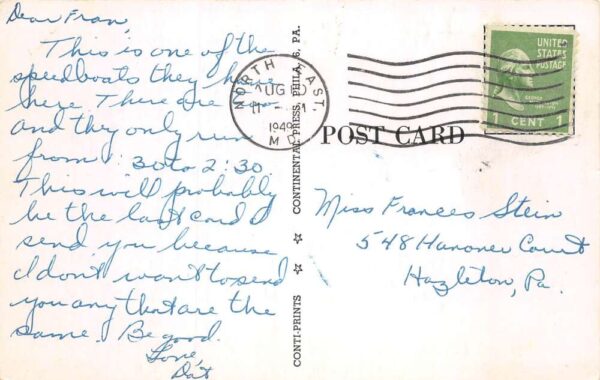 Dear Fran,
This is one of the
speedboats they have
here. There are
and they only run
from 1:30 to 2:30.
This will probably
be the last card I
send you because
I don't want to send
you any that are the
same. Be good.
Love,
Dat
CONTI-PRINTS ☆ ☆ CONTINENTAL PRESS, PHILA. 6, PA.
NORTH EAST,
AUG
1949
MD.
UNITED
STATES
POSTAGE
1 CENT 1
POST CARD
Miss Frances Stein
548 Hanover Court
Hazleton, Pa.